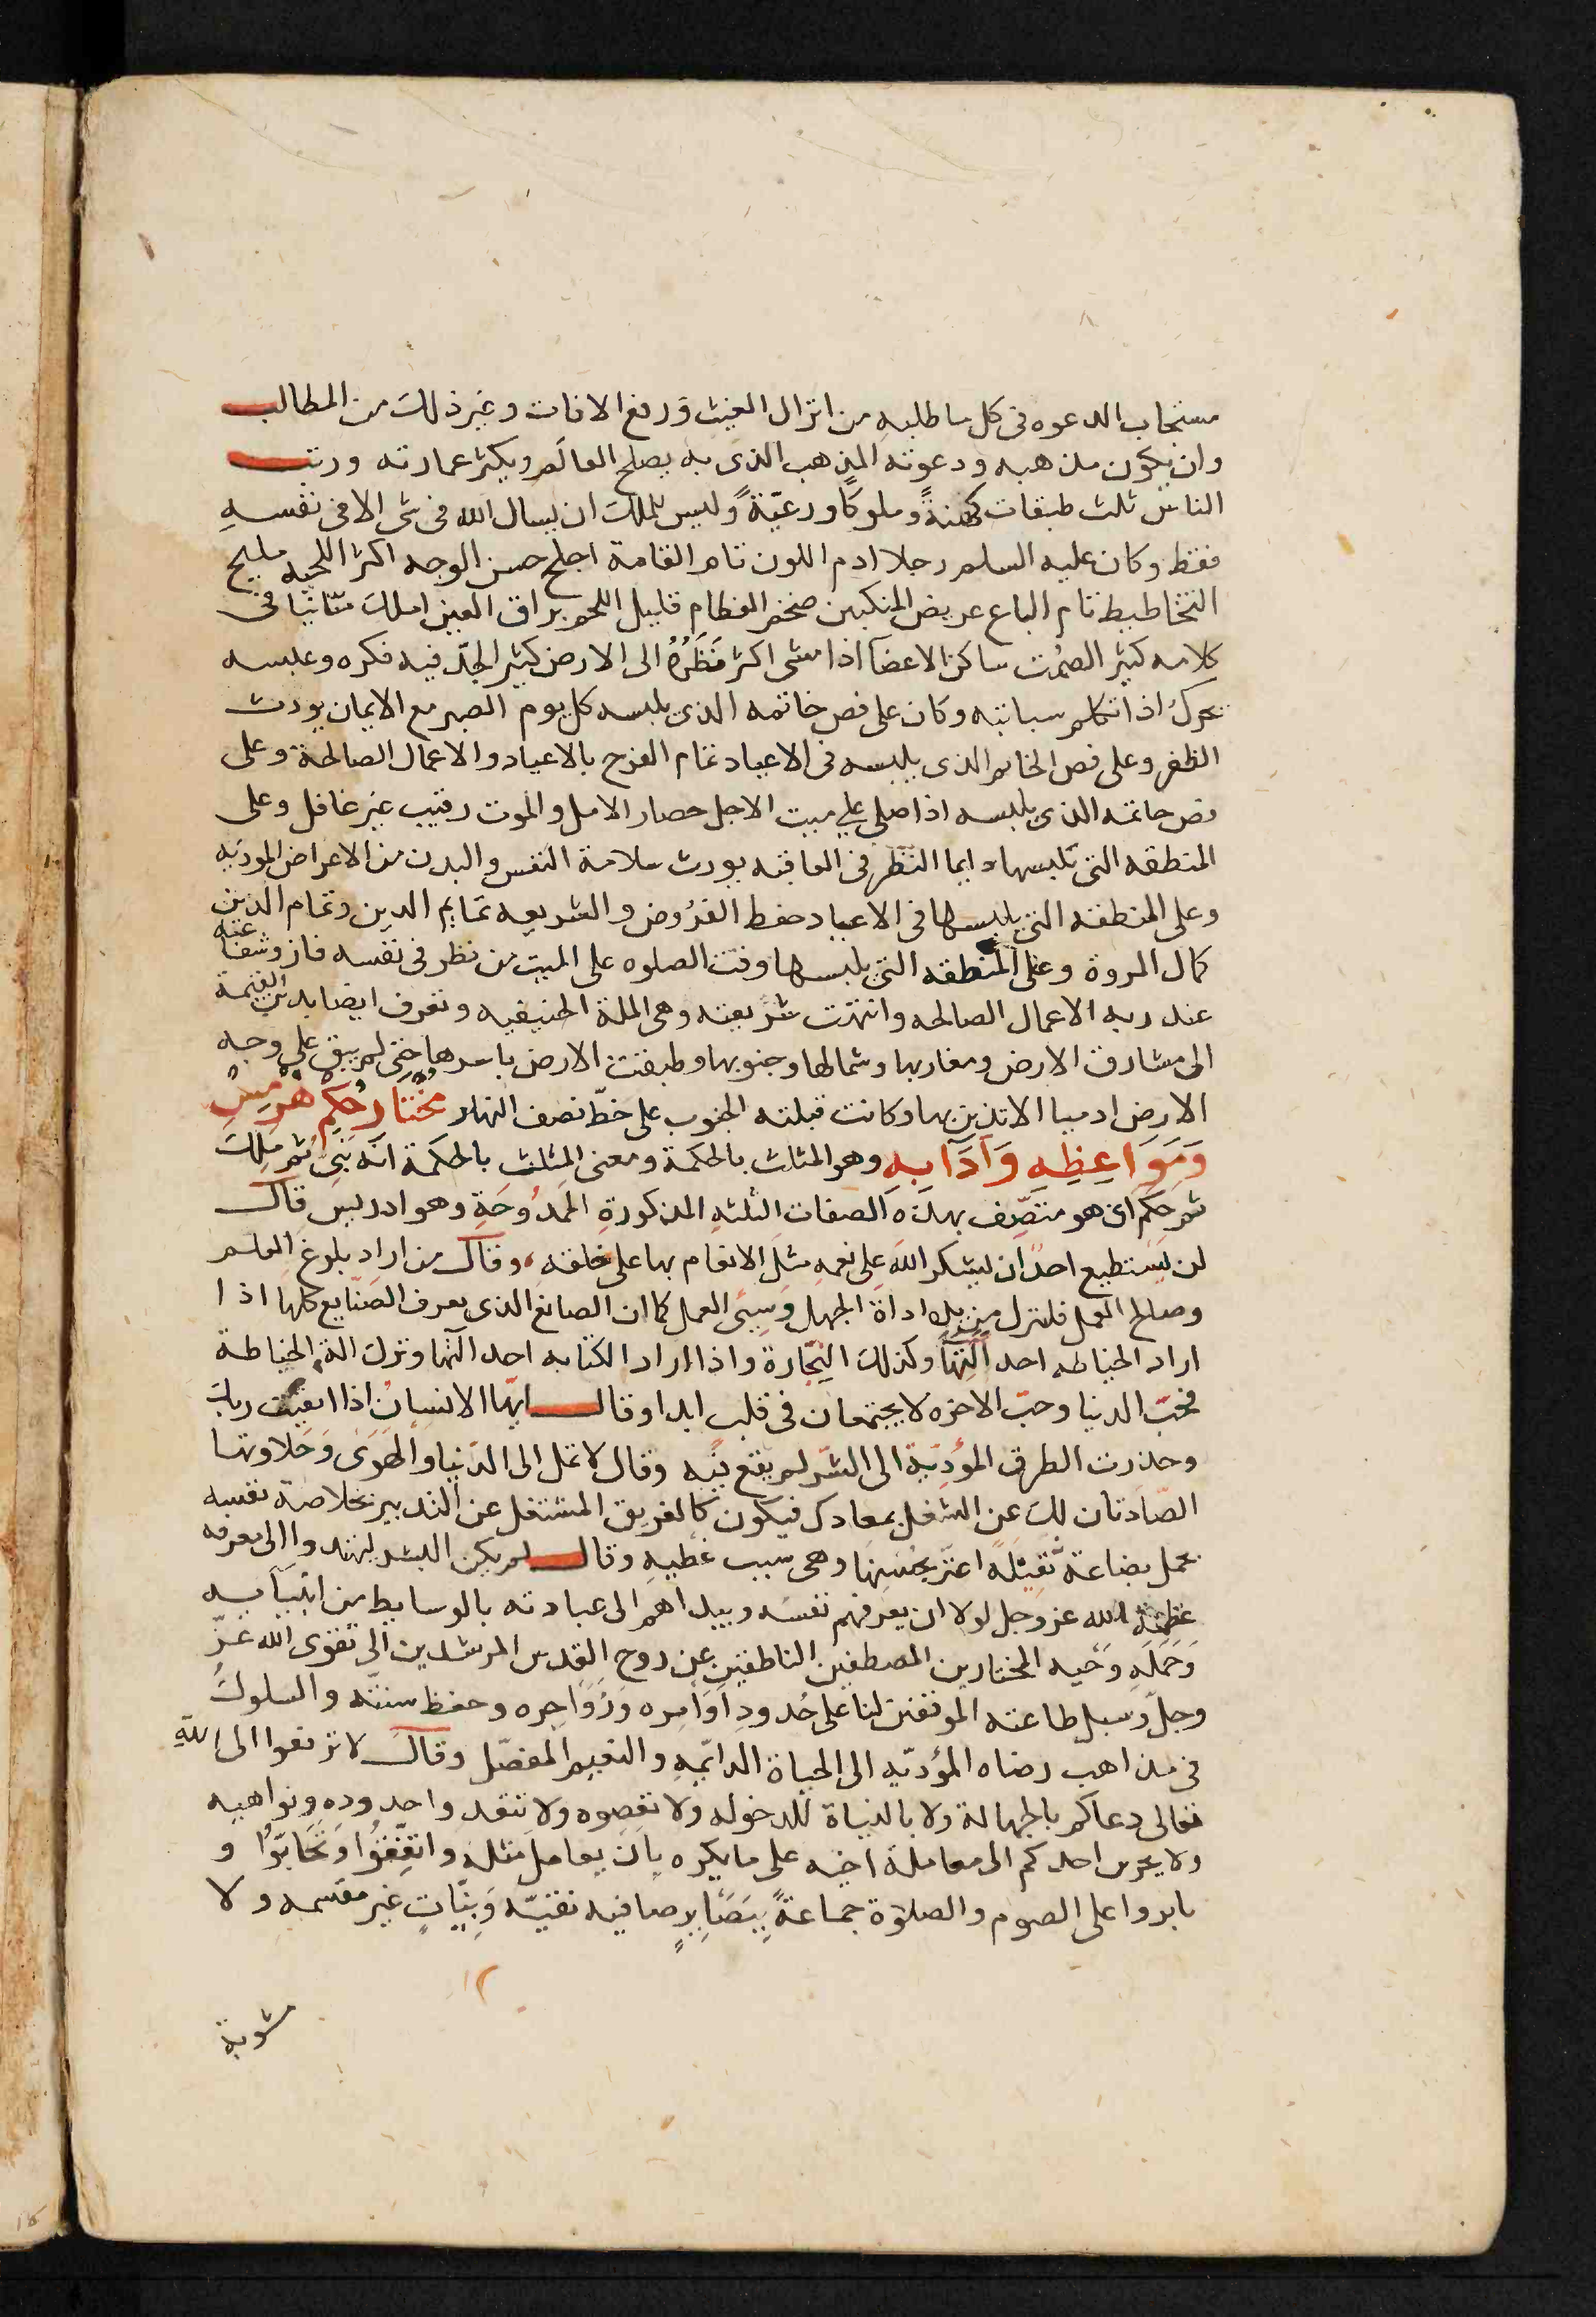 مستجاب الدعوه فى كل ما طلبه من انزال الغيث ورفع الافات وغير ذلك من المطالب
وان يكون مذهبه ودعوته المذهب الذى به يصلح العالم ويكثر عمارته ورتب
الناس ثلث طبقات كهنةً وملوكًا ورعيّةً وليس للملك ان يسال الله فى شى الا فى نفسهِ
فقط وكان عليه السلم رجلا ادم اللون تام القامة اجلح حسن الوجه اكث اللحيه مليح
التخاطيط تام الباع عريض المنكبين ضخم العظام قليل اللحم براق العين املك متانيا فى
كلامه كثير الصمت ساكن الاعضآ اذا مشى اكثر نَظَرُهُ الى الارض كثير الجدّ فيه فكره وعبسه
يحركُ اذا تكلم سبابته وكان على فص خاتمه الذى يلبسه كل يوم الصبر مع الايمان يورث
الظفر وعلى فص الخاتم الذى يلبسه فى الاعياد تمام الفرح بالاعياد والاعمال الصالحة وعلى
فص خاتمه الذى يلبسه اذا صلى على ميت الاجل حصار الامل والموت رقيب غير غافل وعلى
المنطقه التى تلبسها دايما النظر فى العاقبه يورث سلامة النفس والبدن من الاعراض الموذيه
وعلى المنطقه التى يلبسها فى الاعياد حفظ الفرُوض والشريعه تمايم الدين وتمام الدين
كمال المروة وعلى المنطقه التى يلبسها وقت الصلوه على الميت من نظر فى نفسه فاز وشفاعته
عند ربه الاعمال الصالحه وانتهت شريعته وهى الملة الحنيفيه وتعرف ايضا بدين القيمة
الى مشارق الارض ومغاربها وشمالها وجنوبها وطبقت الارض باسرها حتى لم يبق على وجه
الارض ادميا الا تدين بها وكانت قبلته الجنوب على خطّ نصف النهار مُختَار حُكِمِ هُرْمِسِ
وَمَوَاعِظِهِ وَآدَآبِهِ وهو المثلث بالحكمة ومعنى المثلث بالحكمة انّه نبىّ ثم ملك
ثم حكيم اى هو متصِّف بهذه الصفات الثلثهِ المذكورةِ المَمدُوحَةِ وهو ادريس قال
لن يستطيع احدٌ ان يشكر اللهَ على نعمهِ مثل الانعام بها على خلقه، وقال من اراد بلوغ العلم
وصالح العمل فليترك من يده اداة الجهل وَسِيّىَ العمل كما ان الصانع الذى يعرف الصّنايع كلها اذا
اراد الخياطه اخذ آلَتِهَا وكذلك النِجّارة واذا اراد الكتابه اخذ آلتها وترك الة الخياطة
فحبّ الدنيا وحبّ الاخره لا يجتمعان فى قلب ابدا وقال ايّها الانسانُ اذا اتقيت ربك
وحذرت الطرق المؤديّة الى الشّر لم يقع فيه وقال لا تمل الى الدّنيا والهَوَى وَحَلاوتها
الصّادتان لك عن الشغل بمعادك فيكون كالغريق المشتغل عن التدبير بخلاصة نفسه
بحمل بضاعة ثَقِيلَه اعتزّ بحُسنِهَا وهى سبب عَطَبهِ وقال لم يكن البشر ليهتدوا الى معرفه
عظمة الله عز وجل لولا ان يعرفهم نفسَه ويبداهم الى عبادته بالوسايط من انبيآيه
وَحَمَلَهِ وَحيه المختارين المصطفين الناطقين عن روح القدس المرشدين الى تقوى الله عزّ
وجلّ وسبل طاعته الموقفين لنا على حُدودِ اَوَامِره وَزَوَاجِره وحفظ سننه والسلوكُ
فى مذاهب رضاه المؤديّه الى الحياة الدايّمهِ والنعيم المفضّل وقال لا ترفعوا الى اللهِ
تعالى دعاكم بالجهالة ولا بالنياة المدخوله ولا تعصوه ولا تتعدوا حدوده ونواهيه
ولا يجرى احدكم الى معاملة اخيه على ما يكره بان يعامل مثله واتفِّقُوا وَتَحَابّوُا و
بابروا على الصوم والصلوة جماعةً بِبَصَآيرٍ صافيه نقيّه وَبِنيّاتٍ غير مقسمه ولا
مشوبة